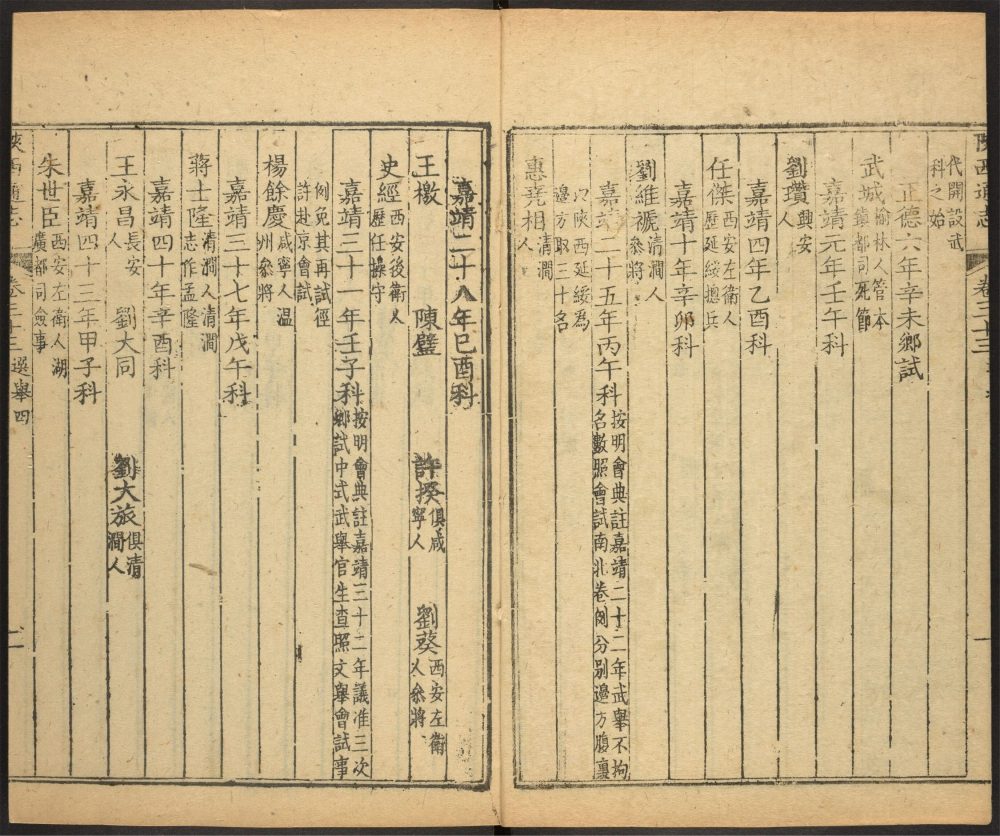 陝西通志 卷三十三
代開設武
科之始
正德六年辛未鄉試
武城榆林人管本
鎮都司死節
嘉靖元年壬午科
劉瓚興安
人
嘉靖四年乙酉科
任傑西安左衛人
歷延綏摠兵
嘉靖十年辛卯科
劉維褫清澗人
參將
嘉靖二十五年丙午科按明會典註嘉靖二十二年武舉不拘
名數照會試南北卷例分別邊方腹裏
以陝西延綏為
邊方取三十名
惠堯相清澗
人
嘉靖二十八年己酉科
王檄 陳璧 許揆俱咸寧人 劉葵西安左衛
人參將
史經西安後衛人
歷任操守
嘉靖三十一年壬子科按明會典註嘉靖三十二年議准三次
鄉試中式武舉官生查照文舉會試事
例免其再試徑
許赴京會試
楊餘慶咸寧人溫
州參將
嘉靖三十七年戊午科
蔣士隆清澗人清澗
志作孟隆
嘉靖四十年辛酉科
王永昌長安
人 劉大同 劉大旅俱清
澗人
嘉靖四十三年甲子科
朱世臣西安左衛人湖
廣都司僉事
陝西通志 卷三十三 選舉四